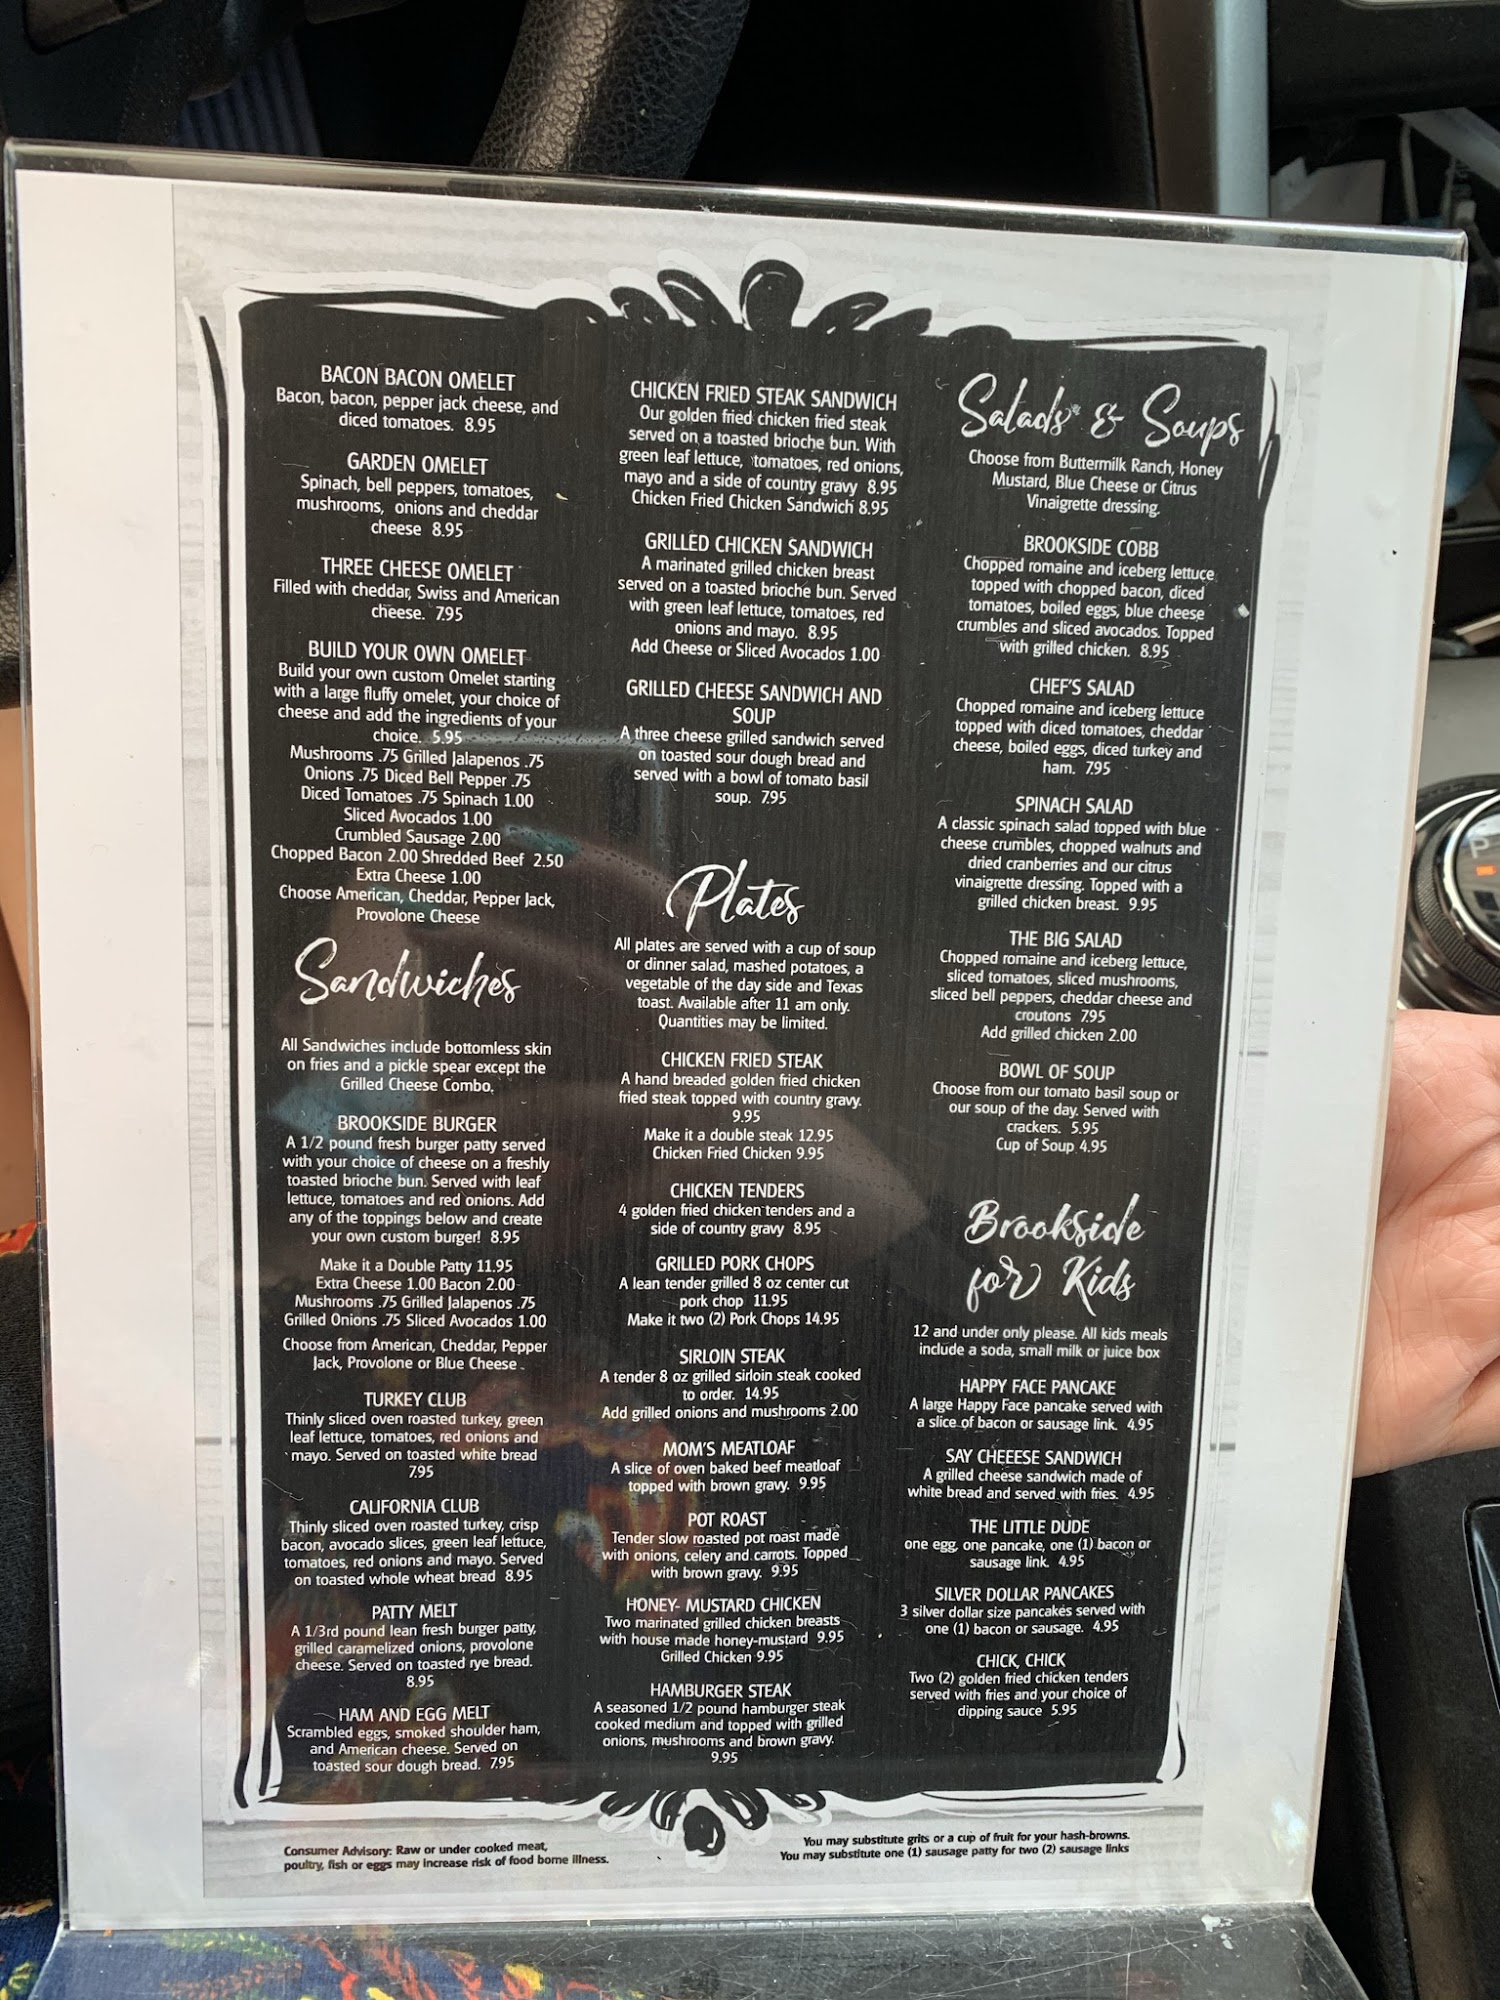 BACON BACON OMELET
Bacon, bacon, pepper jack cheese, and
diced tomatoes. 8.95
GARDEN OMELET
Spinach, bell peppers, tomatoes,
mushrooms, onions and cheddar
cheese 8.95
THREE CHEESE OMELET
Filled with cheddar, Swiss and American
cheese. 7.95
BUILD YOUR OWN OMELET
Build your own custom Omelet starting
with a large fluffy omelet, your choice of
cheese and add the ingredients of your
choice. 5.95
Mushrooms .75 Grilled Jalapenos .75
Onions .75 Diced Bell Pepper .75
Diced Tomatoes .75 Spinach 1.00
Sliced Avocados 1.00
Crumbled Sausage 2.00
Chopped Bacon 2.00 Shredded Beef 2.50
Extra Cheese 1.00
Choose American, Cheddar, Pepper Jack,
Provolone Cheese
Sandwiches
All Sandwiches include bottomless skin
on fries and a pickle spear except the
Grilled Cheese Combo.
BROOKSIDE BURGER
A 1/2 pound fresh burger patty served
with your choice of cheese on a freshly
toasted brioche bun. Served with leaf
lettuce, tomatoes and red onions. Add
any of the toppings below and create
your own custom burger! 8.95
Make it a Double Patty 11.95
Extra Cheese 1.00 Bacon 2.00
Mushrooms .75 Grilled Jalapenos .75
Grilled Onions .75 Sliced Avocados 1.00
Choose from American, Cheddar, Pepper
Jack, Provolone or Blue Cheese
TURKEY CLUB
Thinly sliced oven roasted turkey, green
leaf lettuce, tomatoes, red onions and
mayo. Served on toasted white bread
7.95
CALIFORNIA CLUB
Thinly sliced oven roasted turkey, crisp
bacon, avocado slices, green leaf lettuce,
tomatoes, red onions and mayo. Served
on toasted whole wheat bread 8.95
PATTY MELT
A 1/3rd pound lean fresh burger patty,
grilled caramelized onions, provolone
cheese. Served on toasted rye bread.
8.95
HAM AND EGG MELT
Scrambled eggs, smoked shoulder ham,
and American cheese. Served on
toasted sour dough bread. 7.95
CHICKEN FRIED STEAK SANDWICH
Our golden fried chicken fried steak
served on a toasted brioche bun. With
green leaf lettuce, tomatoes, red onions,
mayo and a side of country gravy 8.95
Chicken Fried Chicken Sandwich 8.95
GRILLED CHICKEN SANDWICH
A marinated grilled chicken breast
served on a toasted brioche bun. Served
with green leaf lettuce, tomatoes, red
onions and mayo. 8.95
Add Cheese or Sliced Avocados 1.00
GRILLED CHEESE SANDWICH AND
SOUP
A three cheese grilled sandwich served
on toasted sour dough bread and
served with a bowl of tomato basil
soup. 7.95
Plates
All plates are served with a cup of soup
or dinner salad, mashed potatoes, a
vegetable of the day side and Texas
toast. Available after 11 am only.
Quantities may be limited.
CHICKEN FRIED STEAK
A hand breaded golden fried chicken
fried steak topped with country gravy.
9.95
Make it a double steak 12.95
Chicken Fried Chicken 9.95
CHICKEN TENDERS
4 golden fried chicken tenders and a
side of country gravy 8.95
GRILLED PORK CHOPS
A lean tender grilled 8 oz center cut
pork chop 11.95
Make it two (2) Pork Chops 14.95
SIRLOIN STEAK
A tender 8 oz grilled sirloin steak cooked
to order. 14.95
Add grilled onions and mushrooms 2.00
MOM'S MEATLOAF
A slice of oven baked beef meatloaf
topped with brown gravy. 9.95
POT ROAST
Tender slow roasted pot roast made
with onions, celery and carrots. Topped
with brown gravy. 9.95
HONEY- MUSTARD CHICKEN
Two marinated grilled chicken breasts
with house made honey-mustard 9.95
Grilled Chicken 9.95
HAMBURGER STEAK
A seasoned 1/2 pound hamburger steak
cooked medium and topped with grilled
onions, mushrooms and brown gravy.
9.95
Salads & Soups
Choose from Buttermilk Ranch, Honey
Mustard, Blue Cheese or Citrus
Vinaigrette dressing.
BROOKSIDE COBB
Chopped romaine and iceberg lettuce
topped with chopped bacon, diced
tomatoes, boiled eggs, blue cheese
crumbles and sliced avocados. Topped
with grilled chicken. 8.95
CHEF'S SALAD
Chopped romaine and iceberg lettuce
topped with diced tomatoes, cheddar
cheese, boiled eggs, diced turkey and
ham. 7.95
SPINACH SALAD
A classic spinach salad topped with blue
cheese crumbles, chopped walnuts and
dried cranberries and our citrus
vinaigrette dressing. Topped with a
grilled chicken breast. 9.95
THE BIG SALAD
Chopped romaine and iceberg lettuce,
sliced tomatoes, sliced mushrooms,
sliced bell peppers, cheddar cheese and
croutons 7.95
Add grilled chicken 2.00
BOWL OF SOUP
Choose from our tomato basil soup or
our soup of the day. Served with
crackers. 5.95
Cup of Soup 4.95
Brookside
for Kids
12 and under only please. All kids meals
include a soda, small milk or juice box
HAPPY FACE PANCAKE
A large Happy Face pancake served with
a slice of bacon or sausage link. 4.95
SAY CHEEESE SANDWICH
A grilled cheese sandwich made of
white bread and served with fries. 4.95
THE LITTLE DUDE
one egg, one pancake, one (1) bacon or
sausage link. 4.95
SILVER DOLLAR PANCAKES
3 silver dollar size pancakes served with
one (1) bacon or sausage. 4.95
CHICK, CHICK
Two (2) golden fried chicken tenders
served with fries and your choice of
dipping sauce 5.95
Consumer Advisory: Raw or under cooked meat,
poultry, fish or eggs may increase risk of food borne illness.
You may substitute grits or a cup of fruit for your hash-browns.
You may substitute one (1) sausage patty for two (2) sausage links
P